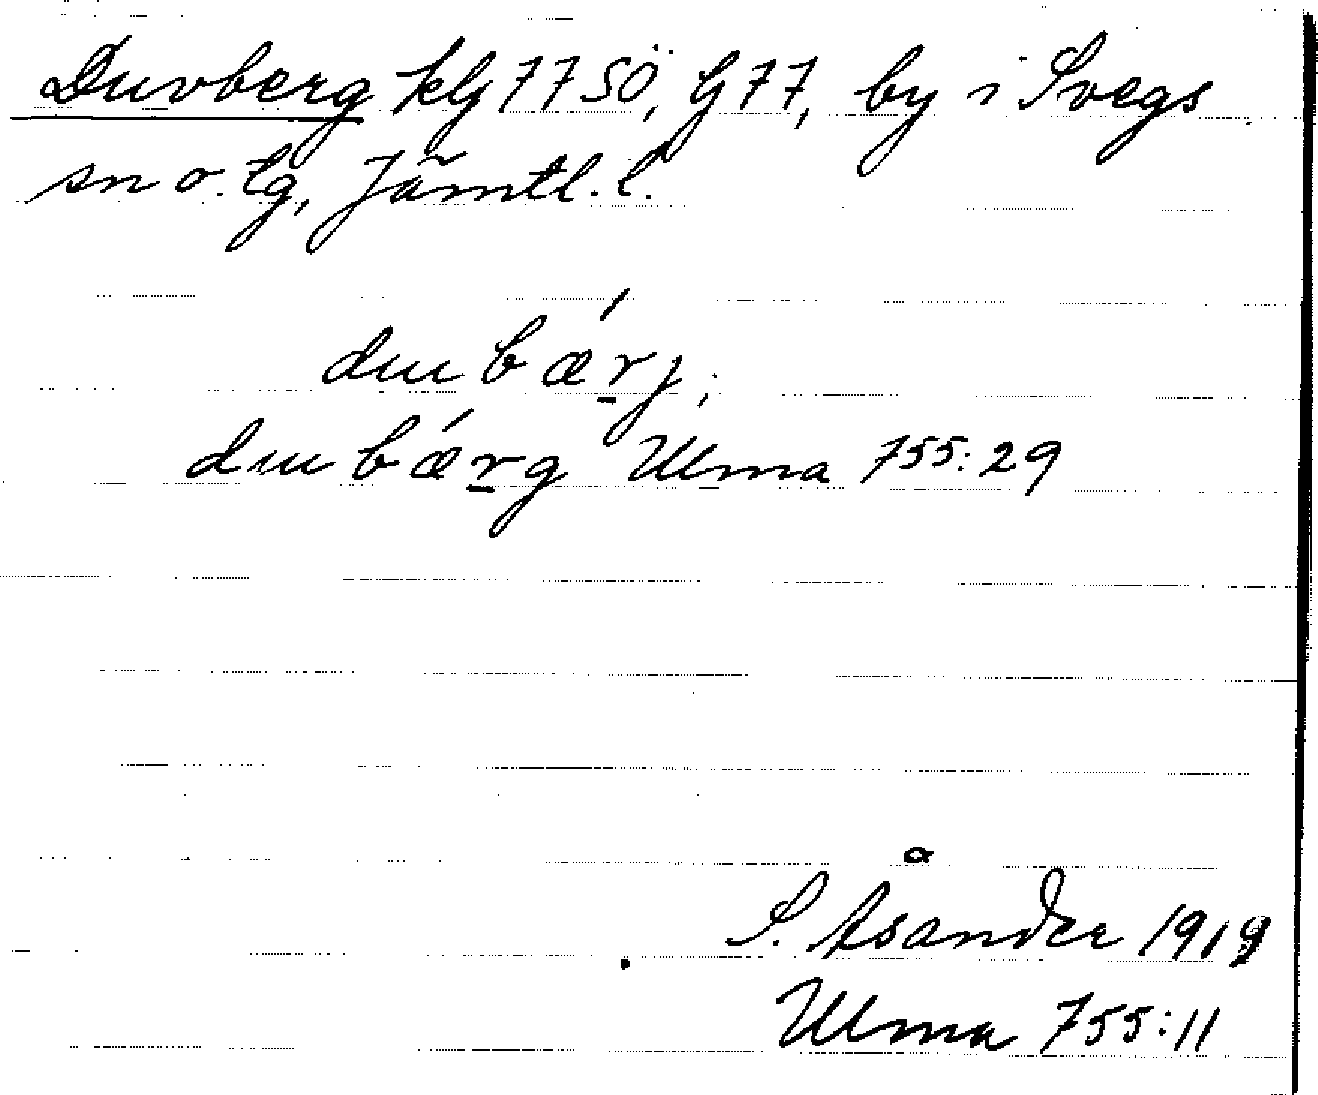 Duvberg klj 77 SÖ, G 77, by i Svegs
sn o. tg, Jämtl. l.
duu bæ̀rj;
duu bæ̀rg Ulma 755:29
S. Åsander 1919
Ulma 755:11